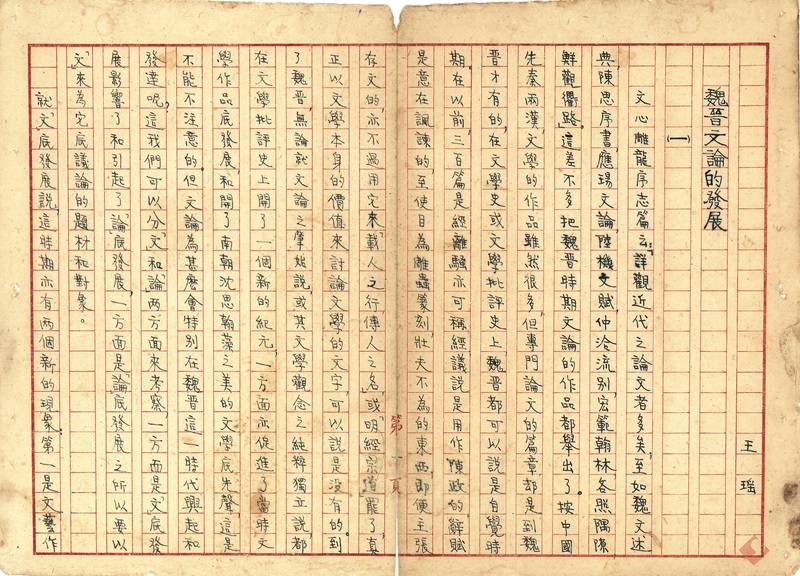 魏晉文論的發展
王瑤
(一)
文心雕龍序志篇云:「詳觀近代之論文者多矣;至如魏文述
典,陳思序書,應瑒文論,陸機文賦,仲洽流別,宏範翰林,各照隅隙,
鮮觀衢路。」這差不多把魏晉時期文論的作品都舉出了。按中國
先秦兩漢文學的作品雖然很多,但專門論文的篇章却是到魏
晉才有的;在文學史或文學批評史上,魏晉都可以說是自覺時
期。在以前,三百篇是經,離騷亦可稱經;議說是用作陳政的,辭賦
是意在諷諫的;至使目為雕蟲篆刻,壯夫不為的東西。即便主張
存文的,亦不過用它來「載人之行,傳人之名」,或「明經宗道」罷了,真
正以文學本身的價值來討論文學的文字,可以說是没有的。到
了魏晉,無論就文論之肇始說,或其文學觀念之純粹獨立說,都
在文學批評史上開了一個新的紀元,一方面亦促進了當時文
學作品底發展,和開了南朝沈思翰藻之美的文學底先聲,這是
不能不注意的。但文論為甚麽會特別在魏晉這一時代興起和
發達呢,這我們可以分「文」和「論」兩方面來考察,一方面是「文」底發
展影響了和引起了「論」底發展,一方面是「論」底發展之所以要以
「文」來為它底議論的題材和對象。
就「文」底發展說,這時期亦有兩個新的現象:第一是文藝作
第一頁